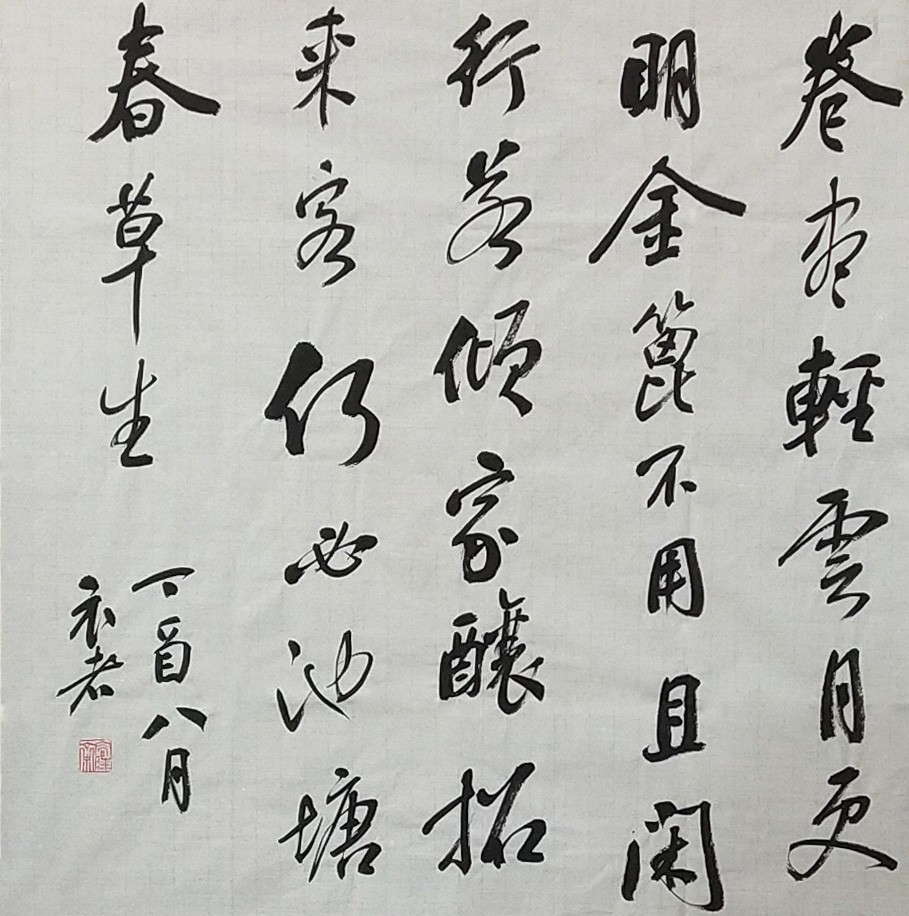 卷尽輕雲月更
明金篦不用且閑
行若傾家釀招
来客何必池塘
春草生
丁酉八月